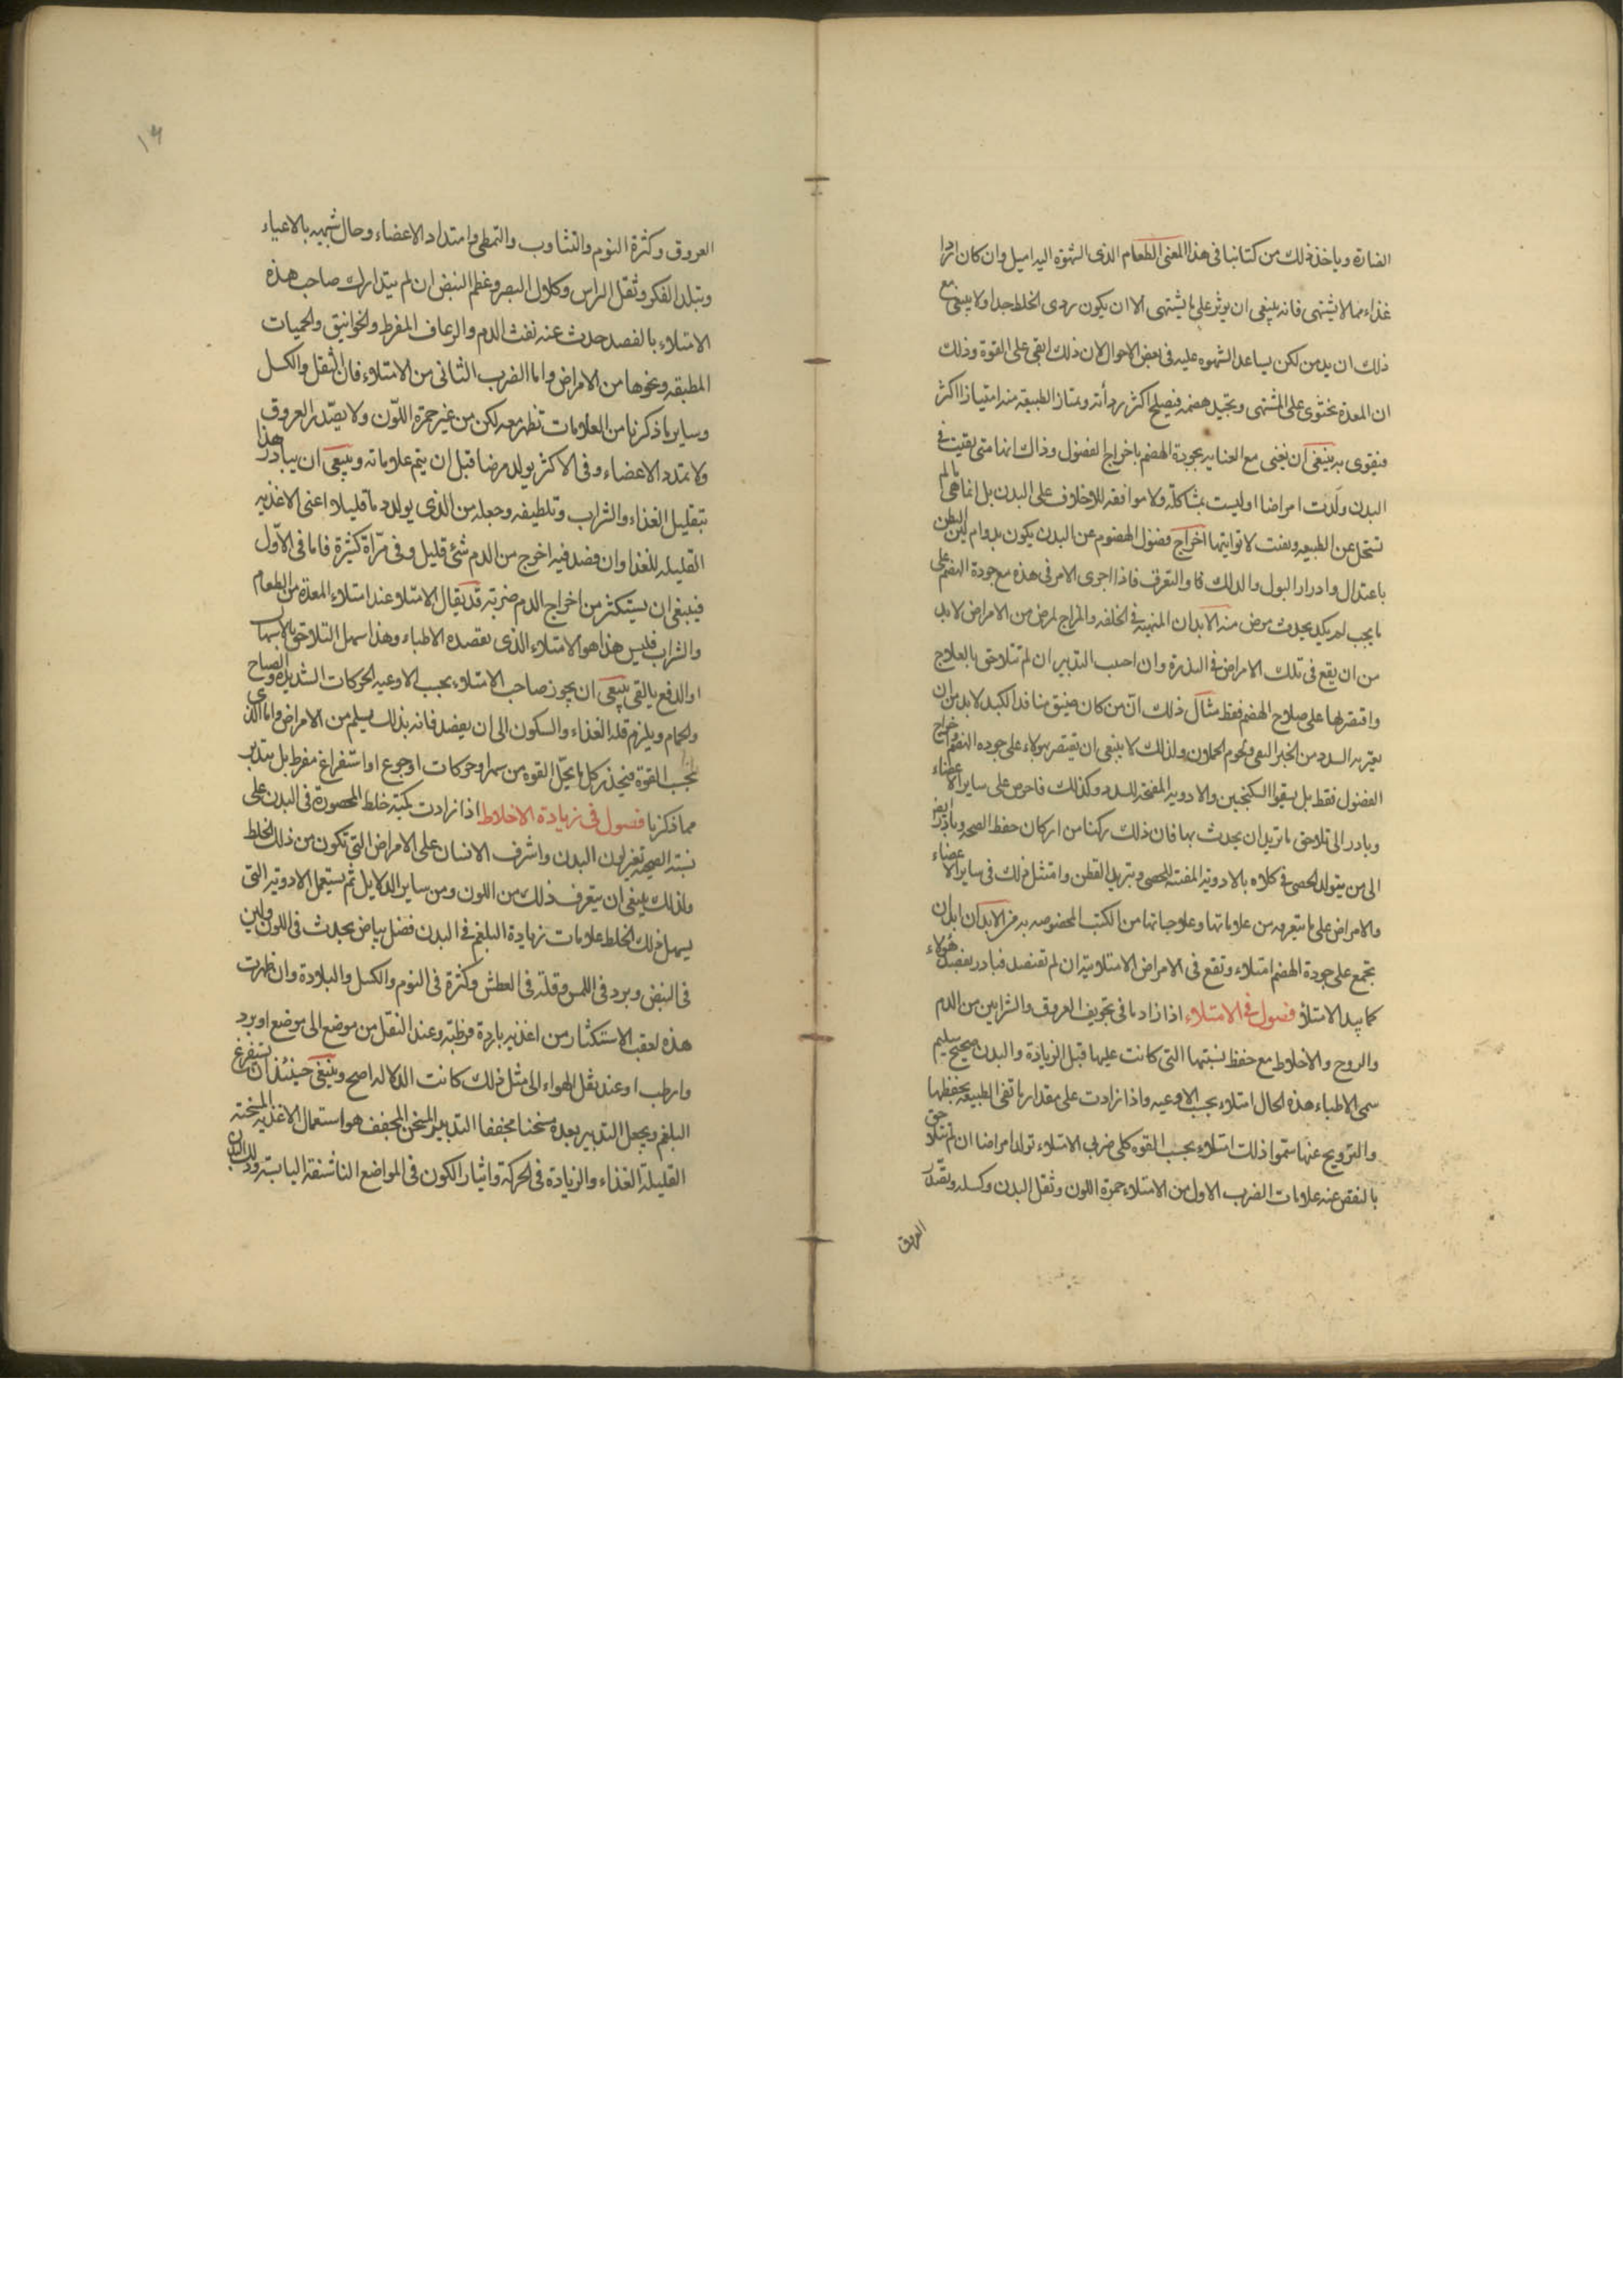 الضارة وياخذ ذلك من كتابنا فى هذا المعنى الطعام الذى الشهوة اليه اميل وان كان اردا
غذاء مما لا يشتهى فانه ينبغى ان يوثر على ما يشتهى الا ان يكون ردى الخلط جدا ولا ينبغى مع
ذلك ان يدمن لكن يساعد الشهوه عليه فى بعض الاحوال لان ذلك ابقى على القوة وذلك
ان المعدة تحتوى على المشتهى ويجيد هضمه فيصلح اكثر ردأته ويمتاز الطبيعة منه امتيازا اكثر
فيقوى به ينبغى ان يعنى مع العنايه بجودة الهضم باخراج الفضول وذاك انها متى بقيت فى
البدن ولّدت امراضا اوليست بمشاكلة ولا موافقه للاخلاف على البدن بل انما هى ما لم
تستحل عن الطبيعه وبقيت لا تواتيها اخراج فضول الهضوم عن البدن يكون بدوام لين البطن
باعتدال وادرار البول والدلك والتعرق فاذا اجرى الامر فى هذه مع جودة الهضم على
ما يجب لم يكد يحدث مرض منه الابدان المتهيئة فى الخلقه والمزاج لمرض من الامراض لا بد
من ان يقع فى تلك الامراض فى الندرة وان احسب التدبير ان لم تتلاحق بالعلاج
واقتصر لها على صلاح الهضم فقط مثال ذلك انّ من كان ضيق منافذ الكبد لا بد من ان
يعتريه السدد من الخبز النقى ولحوم الحملان ولذلك لا ينبغى ان يقتصر بهولاء على جوده الهضم واخراج
الفضول فقط بل يسقوا السكنجبين والادويه المفتحه للسدد وكذلك فاحرص على ساير الاعضاء
وبادر الى تلاحق ما تريد ان يحدث بها فان ذلك ركنا من اركان حفظ الصحه وبادر ايضا
الى من يتولد الحصى فى كلاه بالادوية المفتته للحصى وتبريد القطن وامتثل ذلك فى ساير الاعضاء
والامراض على ما يتعرفه من علاماتها وعلاجاتها من الكتب المخصوصه به فى الابدان ابدان
تجمع على جودة الهضم امتلاء وتقع فى الامراض الامتلائية ان لم تفتصد فبادر بفصد هؤلاء
كما يبدا الامتلاؤ فصول فى الامتلاء اذا زاد ما فى تجويف العروق والشرايين من الدم
والروح والاخلاط مع حفظ نسبتها التى كانت عليها قبل الزيادة والبدن صحيح سليم
سمى الاطباء هذه الحال امتلاء بحسب الاوعيه واذا زادت على مقدار ما تفى الطبيعه بحفظها
والترويح عنها سموا ذلك امتلاء بحسب القوه كلى ضربى الامتلاء تولد امراضا ان لم تتلاحق
بالنقص عنه علامات الضرب الاول من الامتلاء حمرة اللون وثقل البدن وكسله وتمّدد
العروق
١٦
العروق وكثرة النوم والتثاوب والتمطى وامتداد الاعضاء وحال شبيه بالاعياء
وتبلد الفكر وثقل الراس وكلال البصر وعظم النبض ان لم يتدارك صاحب هذه
الامتلاء بالفصد حدث عنه نفث الدم والرعاف المفرط والخوانيق والحميات
المطبقه ونحوها من الامراض واما الضرب الثانى من الامتلاء فان الثقل والكسل
وساير ما ذكرنا من العلامات تظهر معه لكن من غير حمرة اللّون ولا تصّدر العروق
ولا تمتدد الاعضاء وفى الاكثر يولد مرضا قبل ان يتم علاماته وينبغى ان يبادر هذا
بتقليل الغذاء والشراب وتلطيفه وجعله من الذى يولد دما قليلا اعنى الاغذيه
القليله للغذا وان فصد فيه اخرج من الدم شئ قليل وفى مرّاة كثيرة فاما فى الاوّل
فينبغى ان يستكثر من اخراج الدم ضربة قد يقال الامتلا عند امتلاء المعدة من الطعام
والشراب فليس هذا هو الامتلاء الذى تقصده الاطباء وهذا سهل التلاحق بالاسهال
او الدفع بالقى ينبغى ان يحذر صاحب الامتلاء بحسب الاوعيه الحركات الشديدة والصياح
والحمام ويلزم قلة الغذاء والسكون الى ان يفصد فانه بذلك يسلم من الامراض واما الذى
بحسب القوة فيحذر كل ما يحلّ القوه من سهر او حركات او جوع او استفراغ مفرط بل يتدبر
مما ذكرنا فصول فى زيادة الاخلاط اذا زادت كمية خلط المحصورة فى البدن على
نسبة الصحه تغير لون البدن واشرف الانسان على الامراض التى تكون من ذلك الخلط
ولذلك ينبغى ان يتعرف ذلك من اللون ومن ساير الدلايل ثم يستعمل الادوية التى
يسهل ذلك الخلط علامات زيادة البلغم فى البدن فضل بياض يحدث فى اللون ولين
فى النبض وبرد فى اللمس وقلة فى العطش وكثرة فى النوم والكسل والبلادة وان ظهرت
هذه لعقب الاستكثار من اغذيه باردة مرطبة وعند النقل من موضع الى موضع ابرد
وارطب او عند نقل الهواء الى مثل ذلك كانت الدلاله اصح وينبغى حينئذ ان تستفرغ
البلغم ويجعل التدبير بعدة مسخنا مجففا التدبير المسخن المجفف هو استعمال الاغذيه المسخنة
القليلة الغذاء والزيادة فى الحركة وايثار الكون فى المواضع الناشفة اليابسة ودلك البدن